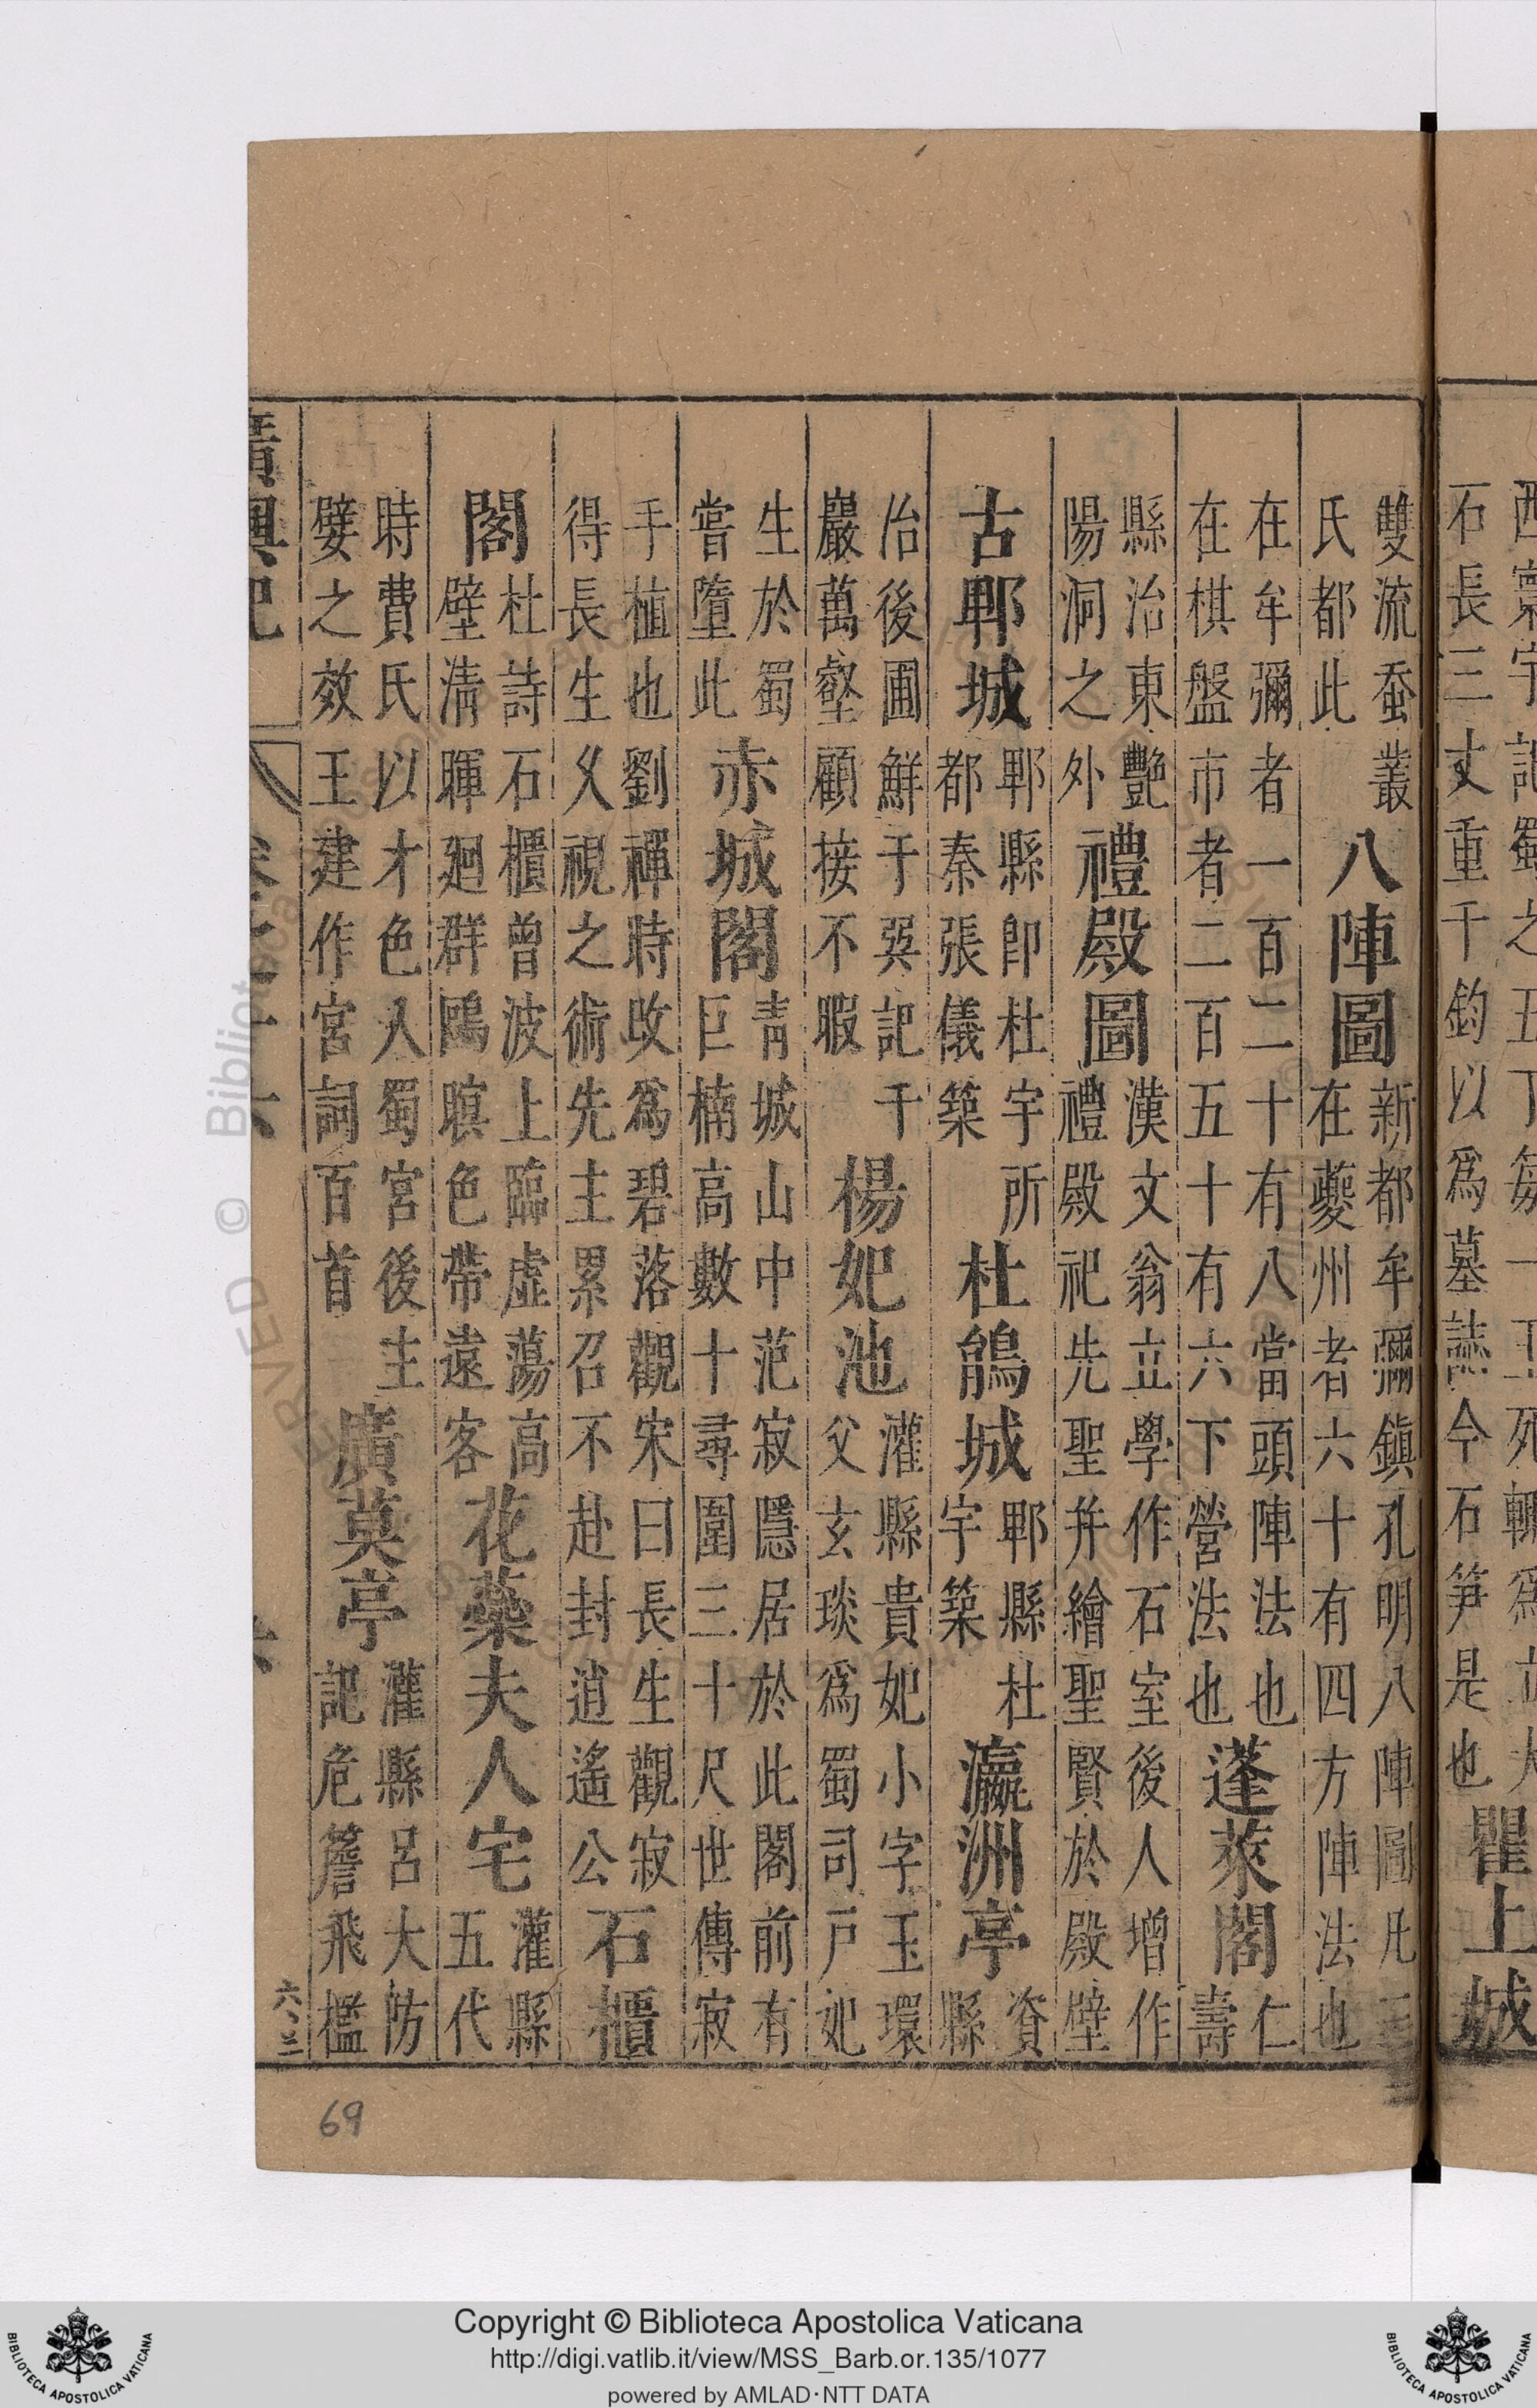 石長三丈重千鈞以爲墓誌今石笋是也
瞿上城
雙流蚕叢
氏都此
八陣圖
新都牟彌鎮孔明八陣圖凡三
在夔州者六十有四方陣法也
在牟彌者一百二十有八當頭陣法也
在棋盤市者二百五十有六下營法也
蓬萊閣
仁
壽
縣治東艷
陽洞之外
禮殿圖
漢文翁立學作石室後人增作
禮殿祀先聖并繪聖賢於殿壁
古郫城
郫縣卽杜宇所
都秦張儀築
杜鵑城
郫縣杜
宇築
瀛洲亭
資
縣
治後圃鮮于㢲記千
巖萬壑顧接不暇
楊妃池
灌縣貴妃小字玉環
父玄琰爲蜀司戸妃
生於蜀
嘗墮此
赤城閣
靑城山中范寂隱居於此閣前有
巨楠高數十尋圍三十尺世傳寂
手植也劉禪時攺爲碧落觀宋曰長生觀寂
得長生久視之術先主累召不赴封逍遙公
石櫃
閣
杜詩石櫃曾波上臨虛蕩高
壁淸暉廻群鷗暝色帶遠客
花蘂夫人宅
灌縣
五代
時費氏以才色入蜀宮後主
嬖之效王建作宮詞百首
廣莫亭
灌縣呂大防
記危簷飛檻
廣輿記
69
Copyright © Biblioteca Apostolica Vaticana
http://digi.vatlib.it/view/MSS_Barb.or.135/1077
powered by AMLAD·NTT DATA
BIBLIOTECA APOSTOLICA VATICANA
BIBLIOTECA APOSTOLICA VATICANA